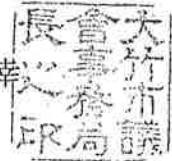 大竹市議
会事務局
長之印
幸